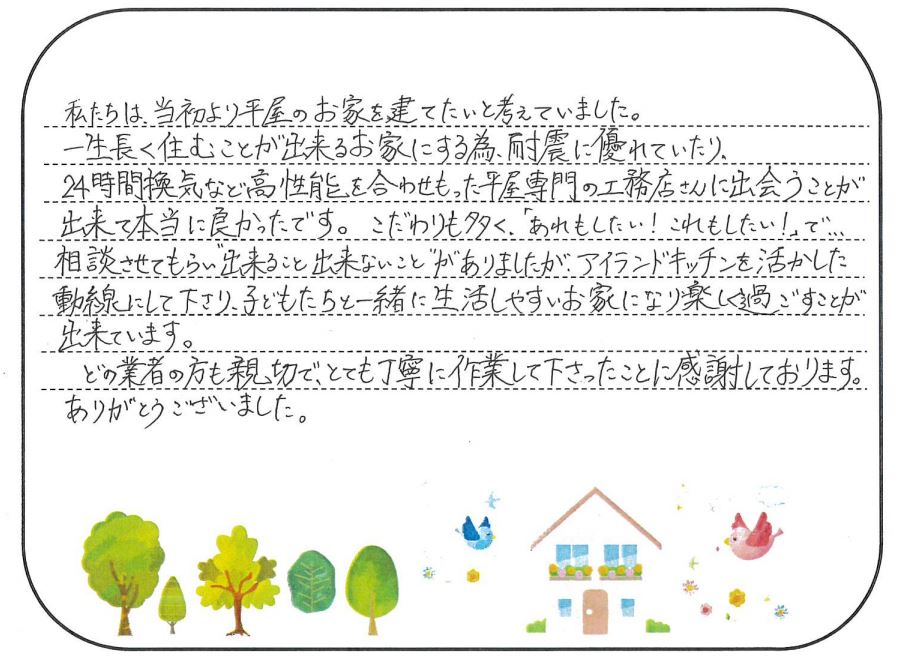 私たちは、当初より平屋のお家を建てたいと考えていました。
一生長く住むことが出来るお家にする為、耐震に優れていたり、
24時間換気など高性能を合わせもった平屋専門の工務店さんに出会うことが
出来て本当に良かったです。こだわりも多く、「あれもしたい！これもしたい！」で…
相談させてもらい"出来ること出来ないこと"がありましたが、アイランドキッチンを活かした
動線にして下さり、子どもたちと一緒に生活しやすいお家になり楽しく過ごすことが
出来ています。
どの業者の方も親切で、とても丁寧に作業して下さったことに感謝しております。
ありがとうございました。